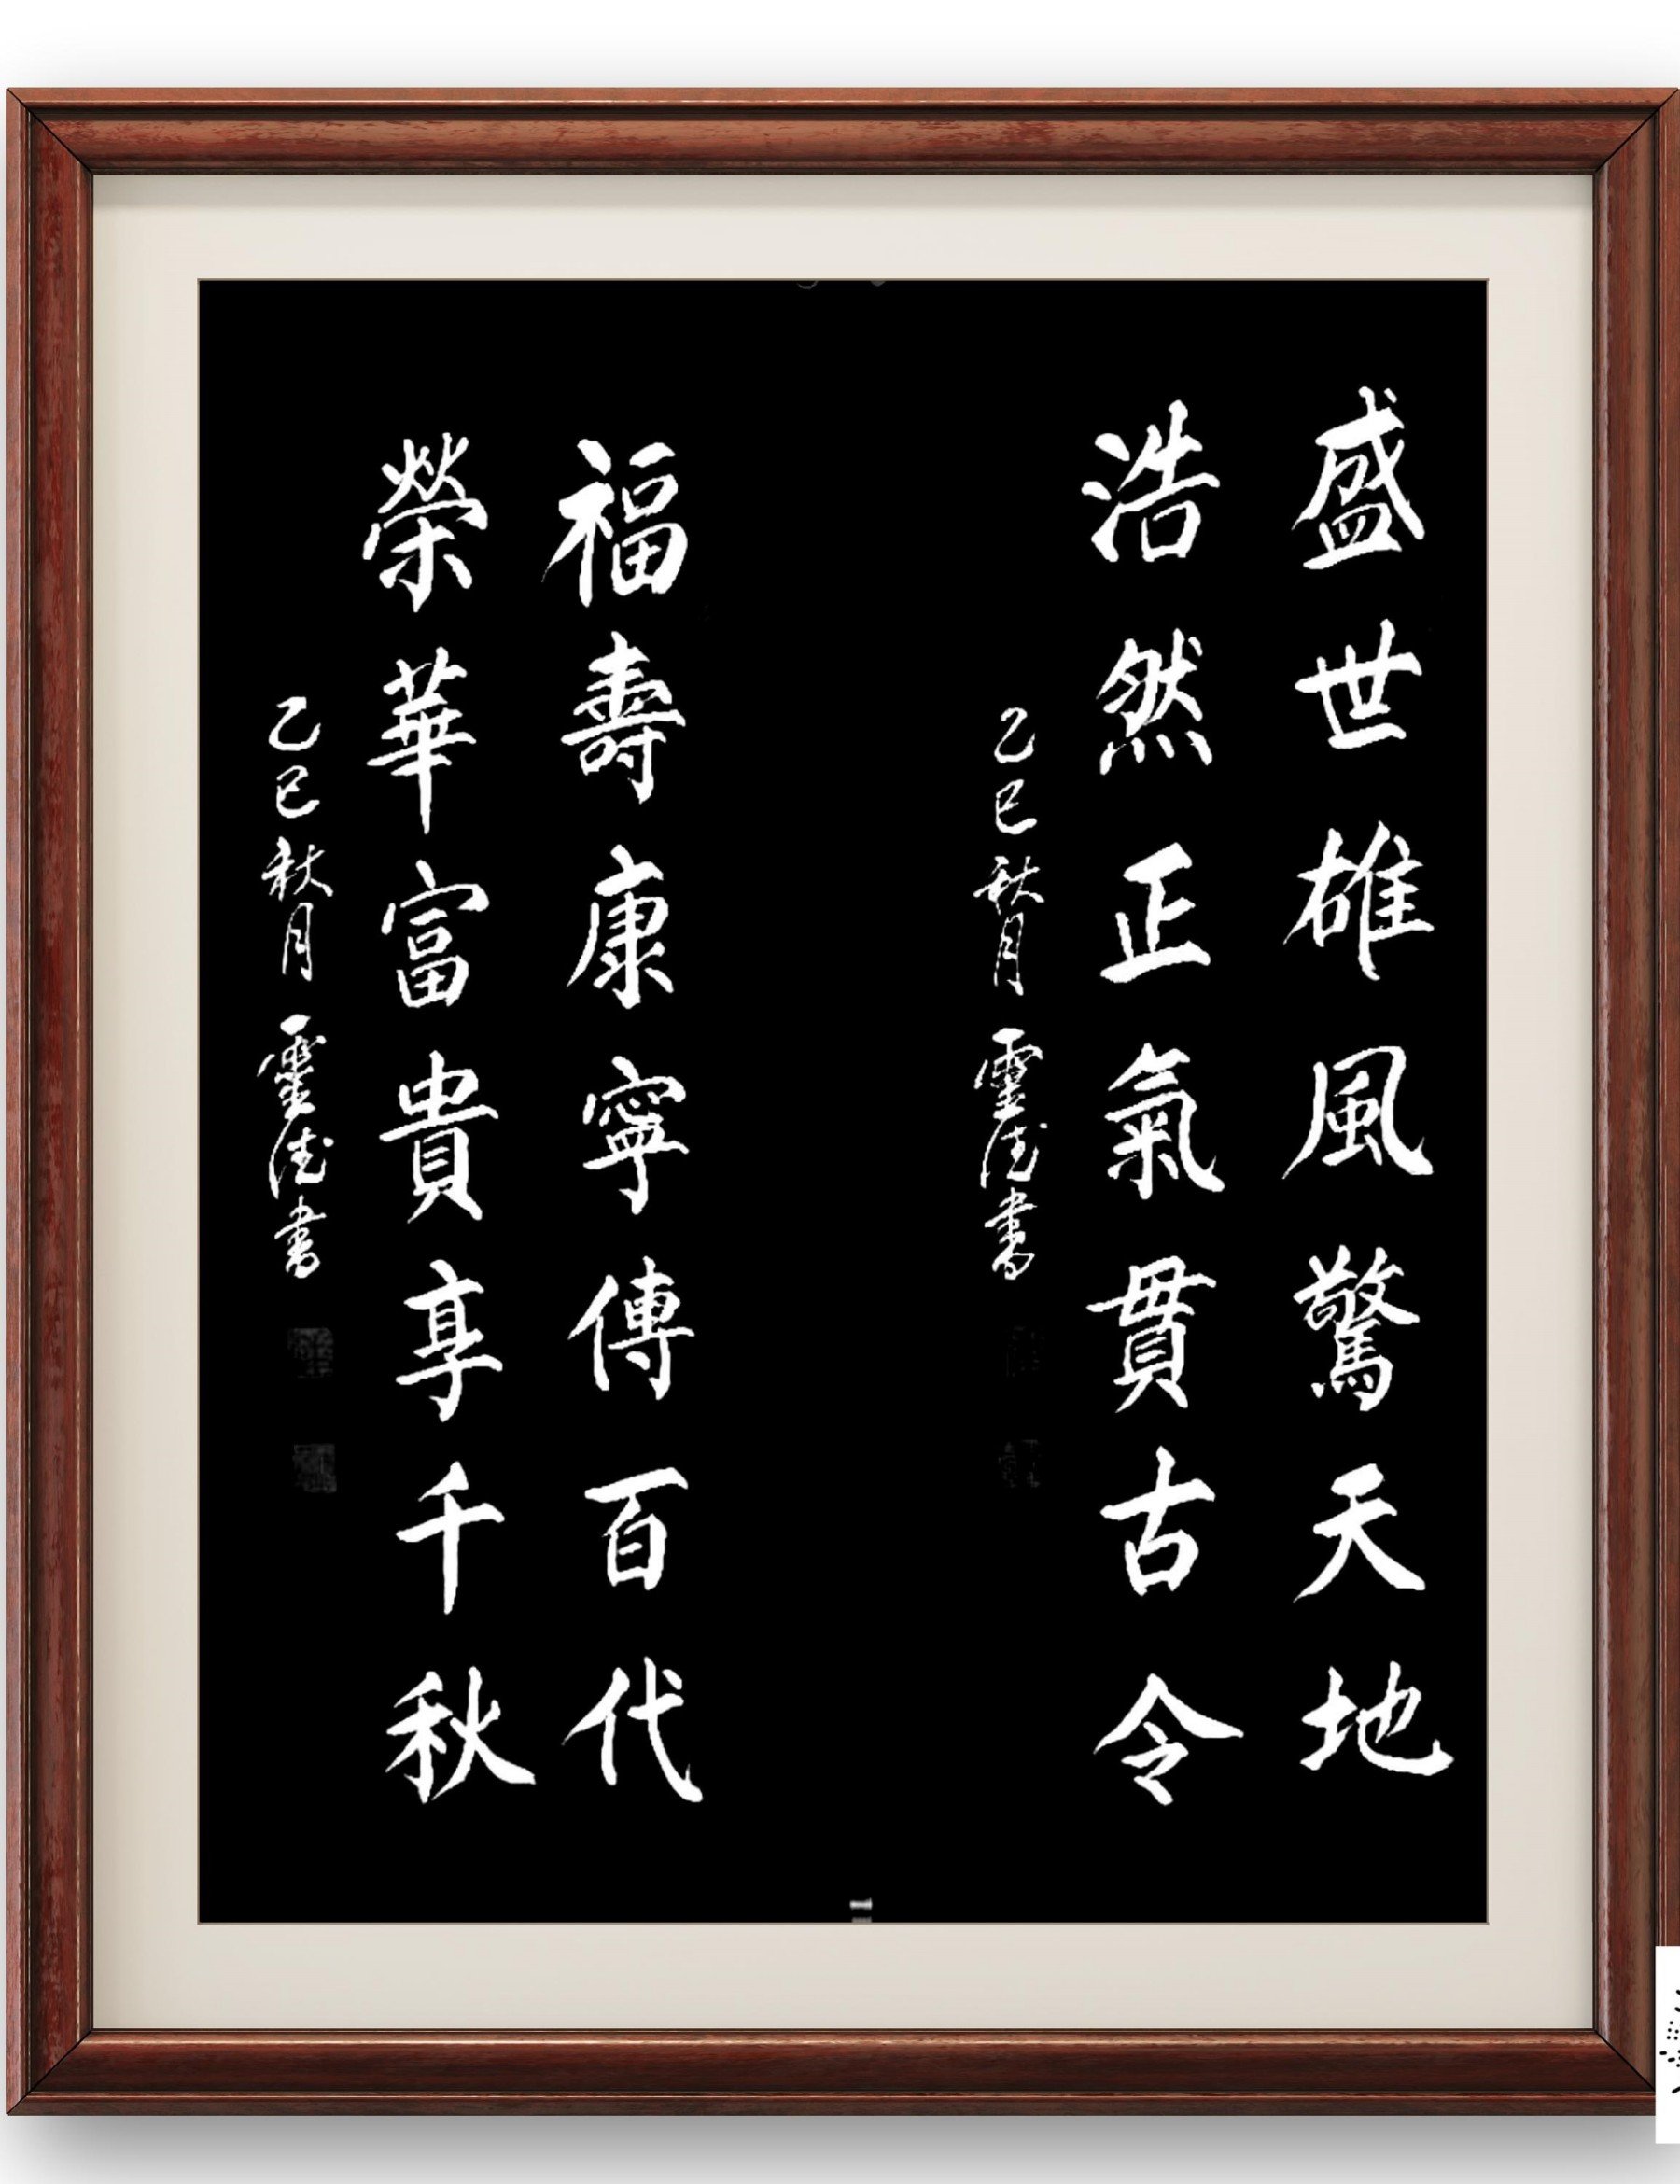 盛世雄風驚天地
浩然正氣貫古令
乙巳秋月 靈法書
福壽康寧傳百代
榮華富貴享千秋
乙巳秋月 靈法書